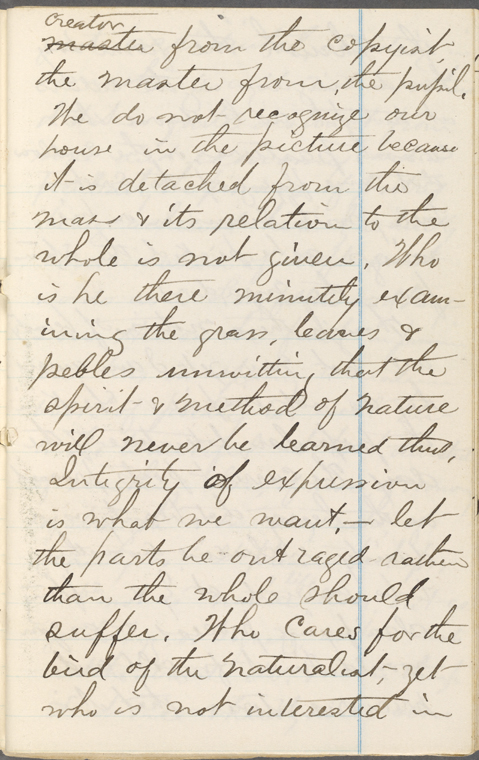 creator
master from the copyist,
the master from the pupil.
We do not recognize our
house in the picture because
it is detached from the
mass & its relation to the
whole is not given. Who
is he there minutely exam-
ining the grass, leaves &
pebles unwitting that the
spirit & method of nature
will never be learned thus.
Integrity of expression
is what we want,— let
the parts be outraged rather
than the whole should
suffer. Who cares for the
bird of the naturalist, yet
who is not interested in